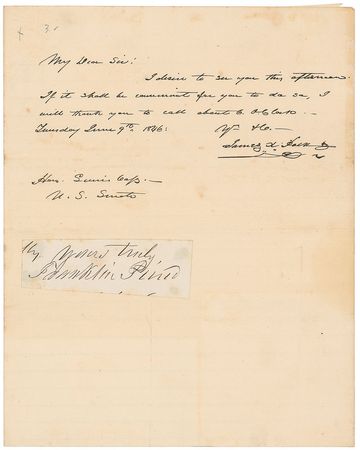 My Dear Sir:
I desire to see you this afternoon.
If it shall be convenient for you to do so, I
will thank you to call about 6. O'Clock. —
Tuesday June 9th. 1846:
Yr. &c. —
James K. Polk
Hon. Lewis Cass. —
U. S. Senate
yours truly,
Franklin Pierce